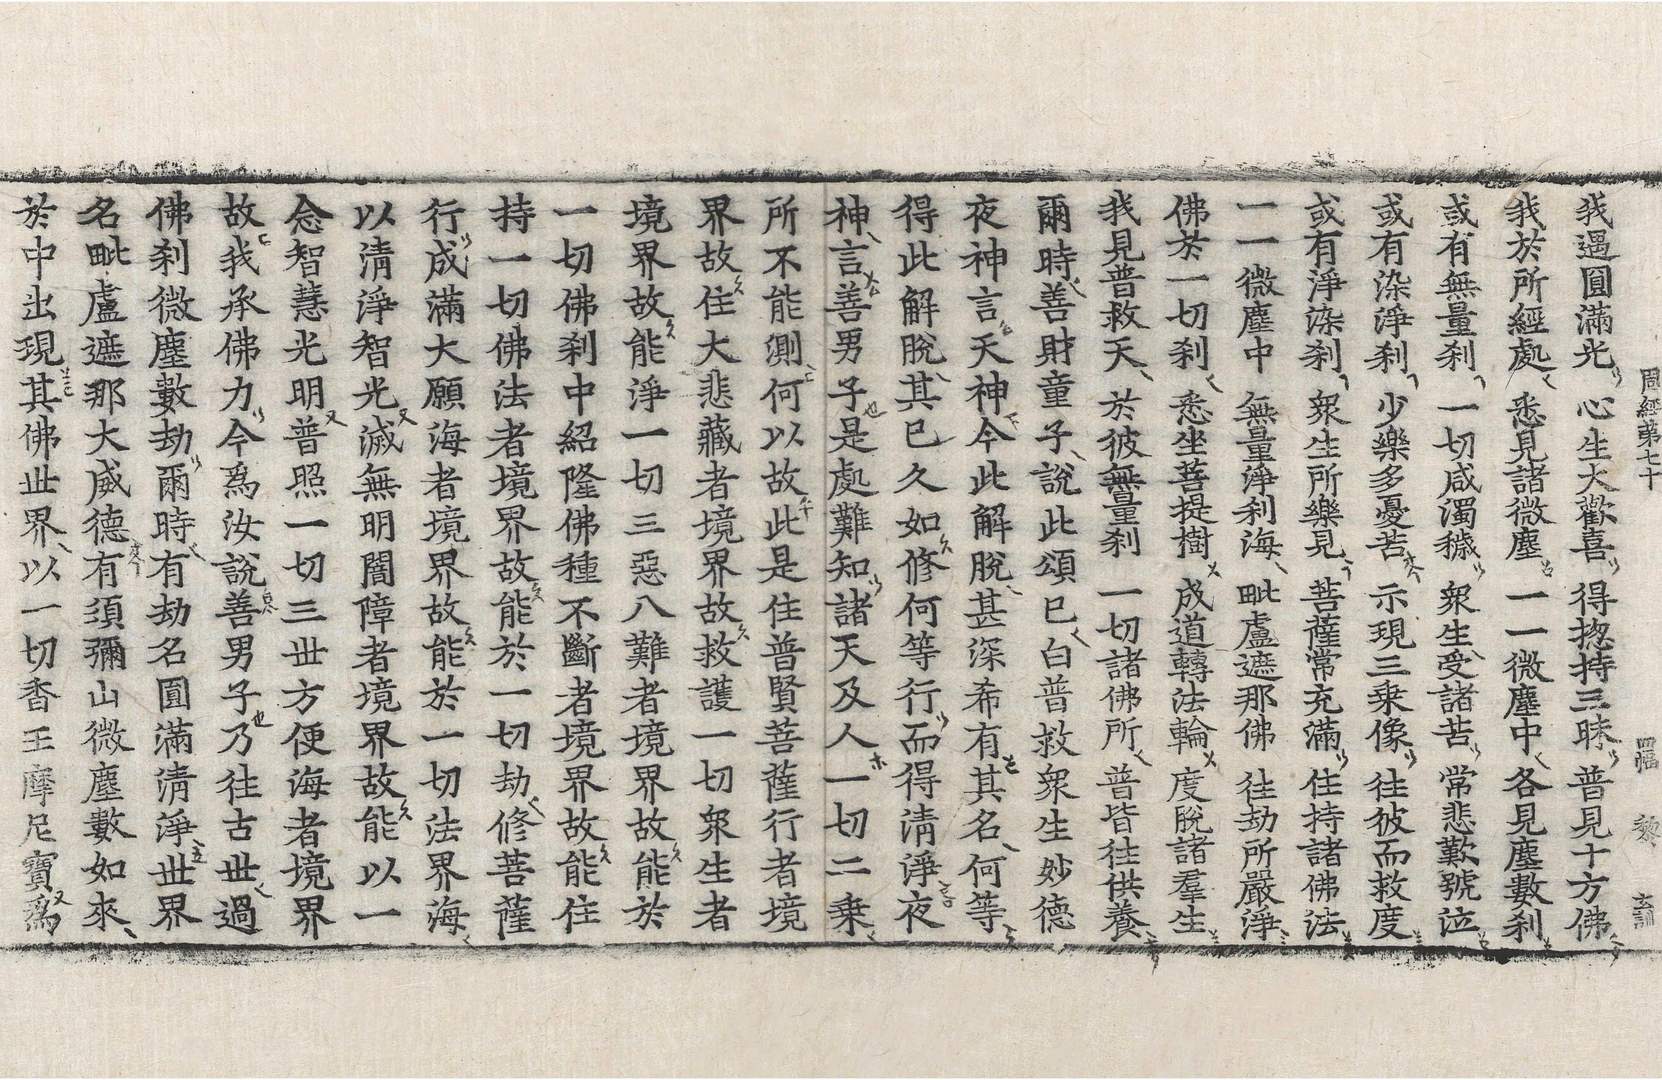 周經第七十 四幅 黎 玄訓
我遇圓滿光 心生大歡喜 得揔持三昧 普見十方佛
我於所經處 悉見諸微塵 一一微塵中 各見塵數刹
或有無量刹 一切咸濁穢 衆生受諸苦 常悲歎號泣
或有染淨刹 少樂多憂苦 示現三乘像 往彼而救度
或有淨染刹 衆生所樂見 菩薩常充滿 住持諸佛法
一一微塵中 無量淨刹海 毗盧遮那佛 往劫所嚴淨
佛於一切刹 悉坐菩提樹 成道轉法輪 度脫諸羣生
我見普救天 於彼無量刹 一切諸佛所 普皆往供養
爾時善財童子說此頌已白普救衆生妙德
夜神言天神今此解脫甚深希有其名何等
得此解脫其已久如修何等行而得淸淨夜
神言善男子是處難知諸天及人一切二乘
所不能測何以故此是住普賢菩薩行者境
界故住大悲藏者境界故救護一切衆生者
境界故能淨一切三惡八難者境界故能於
一切佛刹中紹隆佛種不斷者境界故能住
持一切佛法者境界故能於一切劫修菩薩
行成滿大願海者境界故能於一切法界海
以淸淨智光滅無明闇障者境界故能以一
念智慧光明普照一切三世方便海者境界
故我承佛力今爲汝說善男子乃往古世過
佛刹微塵數劫爾時有劫名圓滿淸淨世界
名毗盧遮那大威德有須彌山微塵數如來
於中出現其佛世界以一切香王摩尼寶爲